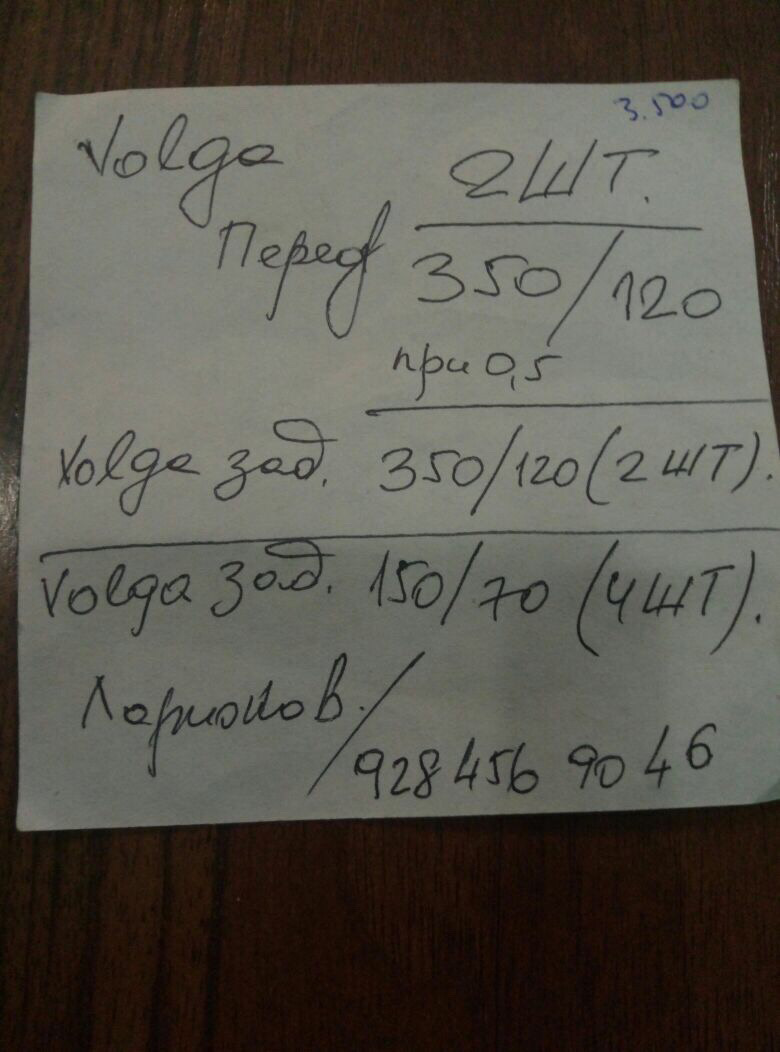 3.500
Volga
2 ШТ.
Перед 350/120
при 0,5
Volga зад. 350/120 (2 ШТ).
Volga зад. 150/70 (4 ШТ).
Ларионов. / 928 456 90 46